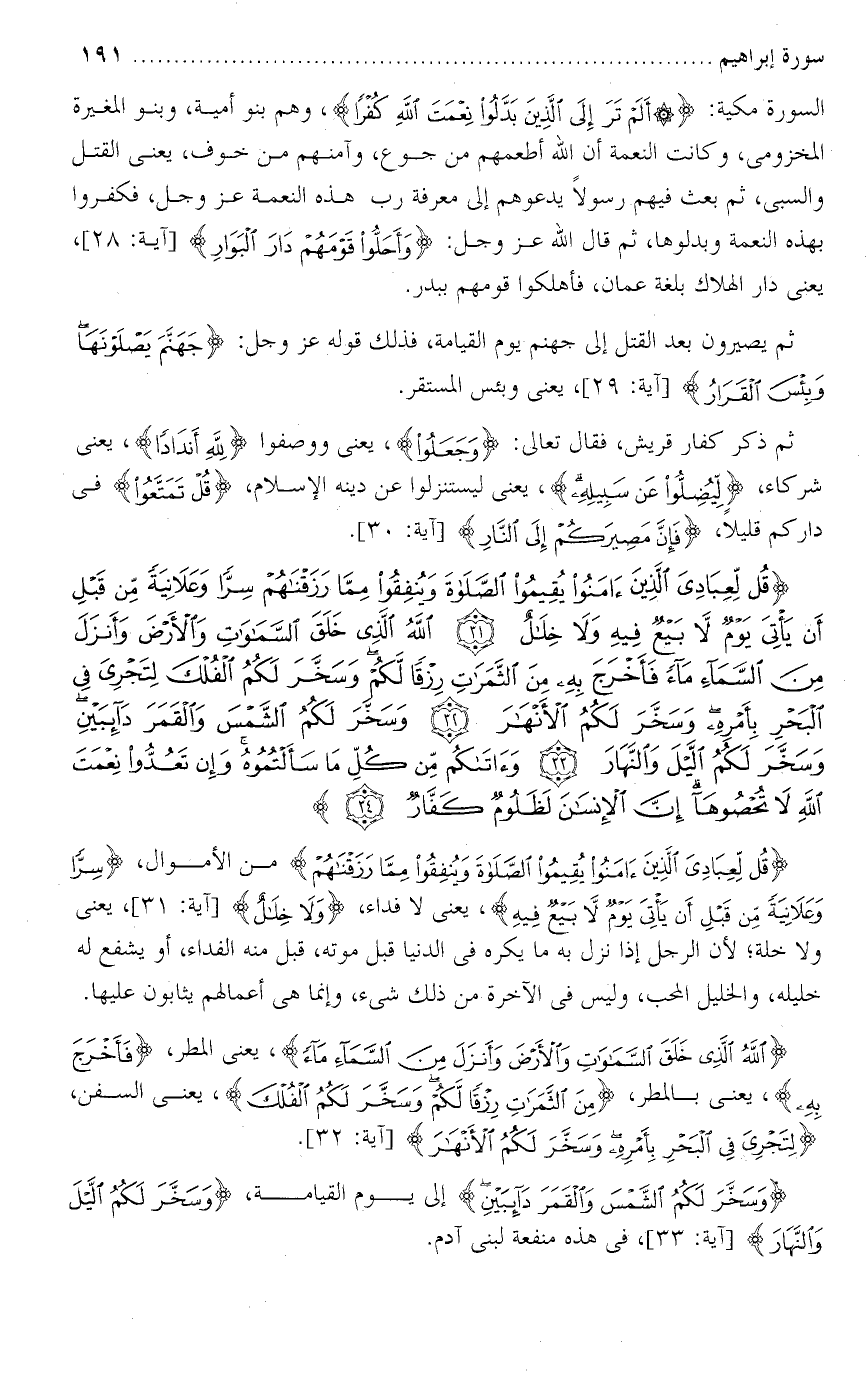 سورة إبراهيم ........................................................................ ١٩١
السورة مكية: ﴿۞أَلَمْ تَرَ إِلَى ٱلَّذِينَ بَدَّلُوا۟ نِعْمَتَ ٱللَّهِ كُفْرًا﴾، وهم بنو أمية، وبنو المغيرة
المخزومى، وكانت النعمة أن الله أطعمهم من جوع، وآمنهم من خوف، يعنى القتل
والسبى، ثم بعث فيهم رسولاً يدعوهم إلى معرفة رب هذه النعمة عز وجل، فكفروا
بهذه النعمة وبدلوها، ثم قال الله عز وجل: ﴿وَأَحَلُّوا۟ قَوْمَهُمْ دَارَ ٱلْبَوَارِ﴾ [آية: ٢٨]،
يعنى دار الهلاك بلغة عمان، فأهلكوا قومهم ببدر.
ثم يصيرون بعد القتل إلى جهنم يوم القيامة، فذلك قوله عز وجل: ﴿جَهَنَّمَ يَصْلَوْنَهَا ۖ
وَبِئْسَ ٱلْقَرَارُ﴾ [آية: ٢٩]، يعنى وبئس المستقر.
ثم ذكر كفار قريش، فقال تعالى: ﴿وَجَعَلُوا۟﴾، يعنى ووصفوا ﴿لِلَّهِ أَندَادًا﴾، يعنى
شركاء، ﴿لِّيُضِلُّوا۟ عَن سَبِيلِهِۦ ۗ﴾، يعنى ليستنزلوا عن دينه الإسلام، ﴿قُلْ تَمَتَّعُوا۟﴾ فى
داركم قليلاً، ﴿فَإِنَّ مَصِيرَكُمْ إِلَى ٱلنَّارِ﴾ [آية: ٣٠].
﴿قُل لِّعِبَادِىَ ٱلَّذِينَ ءَامَنُوا۟ يُقِيمُوا۟ ٱلصَّلَوٰةَ وَيُنفِقُوا۟ مِمَّا رَزَقْنَـٰهُمْ سِرًّا وَعَلَانِيَةً مِّن قَبْلِ
أَن يَأْتِىَ يَوْمٌ لَّا بَيْعٌ فِيهِ وَلَا خِلَـٰلٌ ٣١ ٱللَّهُ ٱلَّذِى خَلَقَ ٱلسَّمَـٰوَٰتِ وَٱلْأَرْضَ وَأَنزَلَ
مِنَ ٱلسَّمَآءِ مَآءً فَأَخْرَجَ بِهِۦ مِنَ ٱلثَّمَرَٰتِ رِزْقًا لَّكُمْ ۖ وَسَخَّرَ لَكُمُ ٱلْفُلْكَ لِتَجْرِىَ فِى
ٱلْبَحْرِ بِأَمْرِهِۦ ۖ وَسَخَّرَ لَكُمُ ٱلْأَنْهَـٰرَ ٣٢ وَسَخَّرَ لَكُمُ ٱلشَّمْسَ وَٱلْقَمَرَ دَآئِبَيْنِ ۖ
وَسَخَّرَ لَكُمُ ٱلَّيْلَ وَٱلنَّهَارَ ٣٣ وَءَاتَىٰكُم مِّن كُلِّ مَا سَأَلْتُمُوهُ ۚ وَإِن تَعُدُّوا۟ نِعْمَتَ
ٱللَّهِ لَا تُحْصُوهَآ ۗ إِنَّ ٱلْإِنسَـٰنَ لَظَلُومٌ كَفَّارٌ ٣٤ ﴾
﴿قُل لِّعِبَادِىَ ٱلَّذِينَ ءَامَنُوا۟ يُقِيمُوا۟ ٱلصَّلَوٰةَ وَيُنفِقُوا۟ مِمَّا رَزَقْنَـٰهُمْ﴾ من الأموال، ﴿سِرًّا
وَعَلَانِيَةً مِّن قَبْلِ أَن يَأْتِىَ يَوْمٌ لَّا بَيْعٌ فِيهِ﴾، يعنى لا فداء، ﴿وَلَا خِلَـٰلٌ﴾ [آية: ٣١]، يعنى
ولا خلة؛ لأن الرجل إذا نزل به ما يكره فى الدنيا قبل موته، قبل منه الفداء، أو يشفع له
خليله، والخليل المحب، وليس فى الآخرة من ذلك شىء، وإنما هى أعمالهم يثابون عليها.
﴿ٱللَّهُ ٱلَّذِى خَلَقَ ٱلسَّمَـٰوَٰتِ وَٱلْأَرْضَ وَأَنزَلَ مِنَ ٱلسَّمَآءِ مَآءً﴾، يعنى المطر، ﴿فَأَخْرَجَ
بِهِۦ﴾، يعنى بالمطر، ﴿مِنَ ٱلثَّمَرَٰتِ رِزْقًا لَّكُمْ ۖ وَسَخَّرَ لَكُمُ ٱلْفُلْكَ﴾، يعنى السفن،
﴿لِتَجْرِىَ فِى ٱلْبَحْرِ بِأَمْرِهِۦ ۖ وَسَخَّرَ لَكُمُ ٱلْأَنْهَـٰرَ﴾ [آية: ٣٢].
﴿وَسَخَّرَ لَكُمُ ٱلشَّمْسَ وَٱلْقَمَرَ دَآئِبَيْنِ ۖ﴾ إلى يوم القيامة، ﴿وَسَخَّرَ لَكُمُ ٱلَّيْلَ
وَٱلنَّهَارَ﴾ [آية: ٣٣]، فى هذه منفعة لبنى آدم.